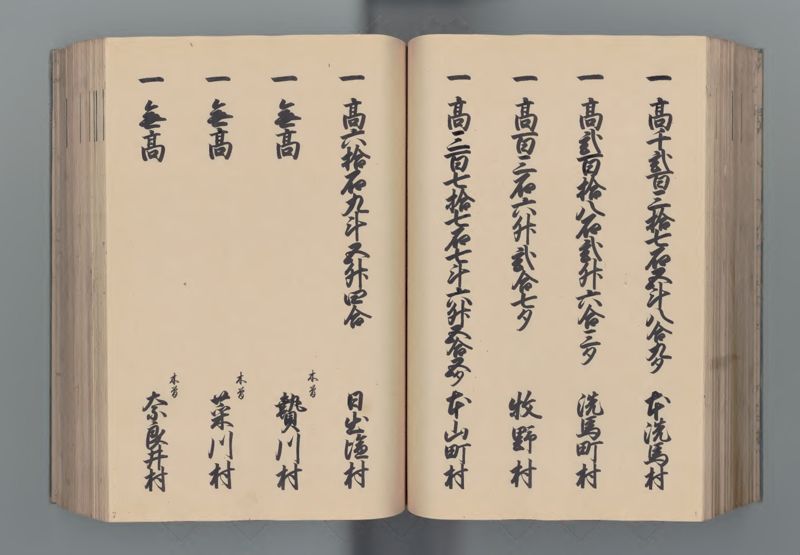 一 高千弐百三拾七石五斗八合九夕 本洗馬村
一 高弐百拾八石弐升六合三夕 洗馬町村
一 高百三石六升弐合七夕 牧野村
一 高三百七拾七石七斗六升五合五夕 本山町村
一 高六拾石九斗五升四合 日出塩村
一 無高 木曽 贄川村
一 無高 木曽 菜川村
一 無高 木曽 奈良井村